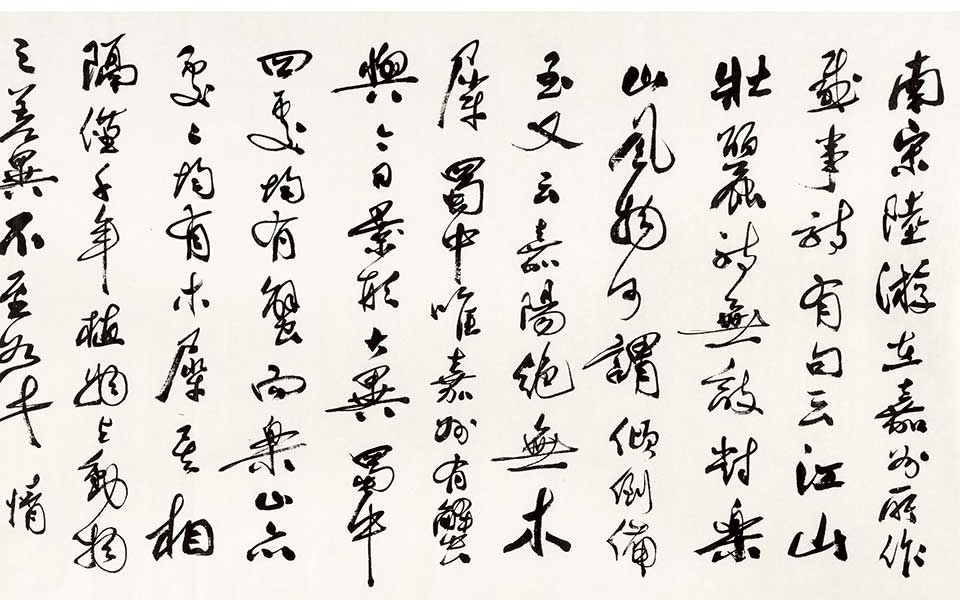 南宋陸游在嘉州所作
載事詩有句云江山
壯麗詩無敵對樂
山風物可謂傾倒備
至又云嘉陽絕無木
犀蜀中唯嘉州有蟹
與今日大異蜀中
四處均有蟹而樂山亦
處處均有木犀其相
隔僅千年植物與動物
之差異不至如情